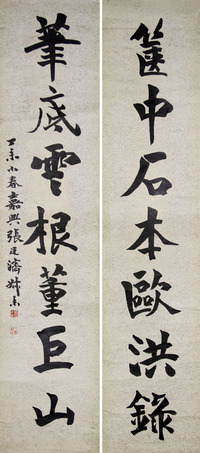 篋中石本歐洪錄
筆底雲根董巨山
丁未小春嘉興張廷濟叔未